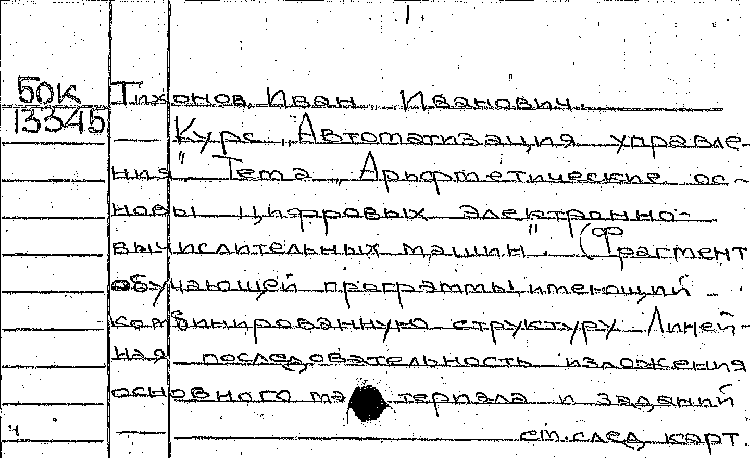 1.
БОК Тихонов, Иван Иванович.
13345 Курс „Автоматизация управле-
ния" Тема „Арифметические ос-
новы цифровых электронно-
вычислительных машин". (Фрагмент
обучающей программы, имеющий
комбинированную структуру. Линей-
ная последовательность изложения
основного материала и заданий
ч см. след карт.